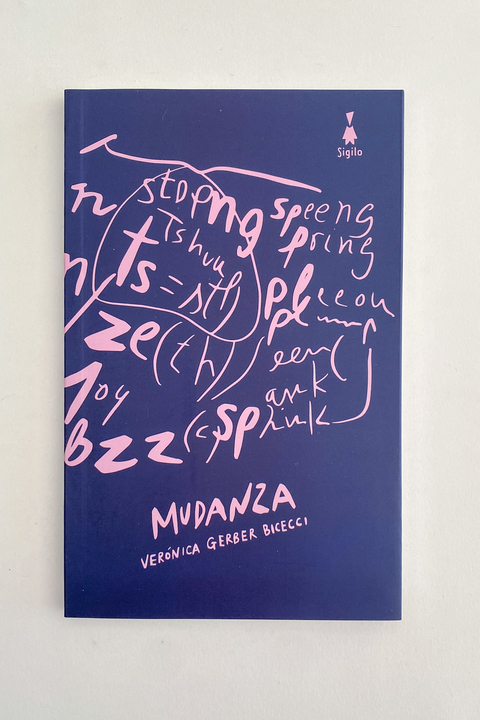 Sigilo
n stopng speeng
Tshuul pring
n ts = stl pl
ze(th)
Joy ark
bzz (c, sp
MUDANZA
VERÓNICA GERBER BICECCI